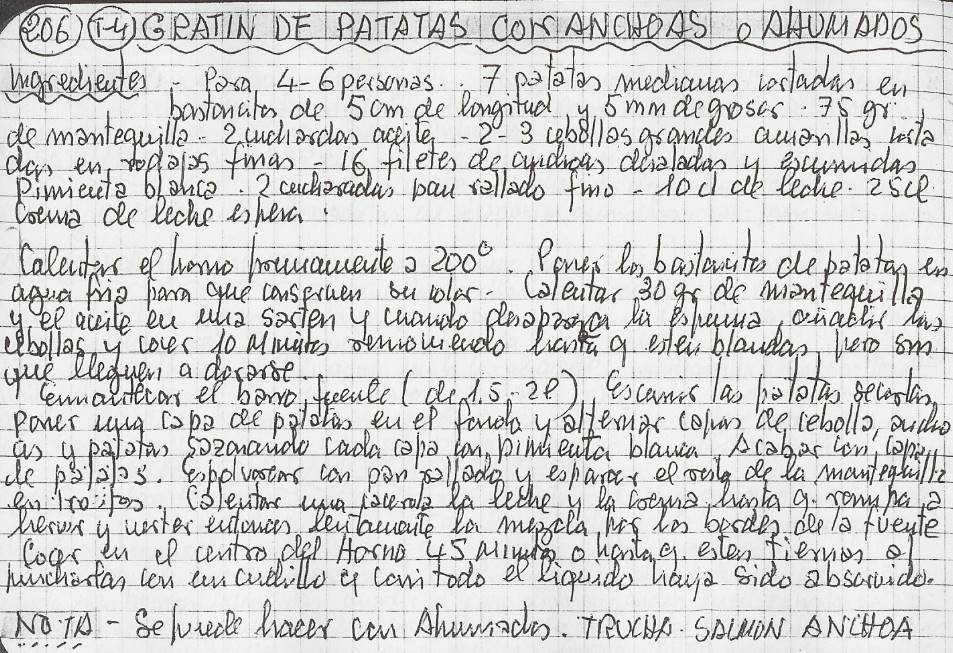 206 T-4 GRATIN DE PATATAS CON ANCHOAS o AHUMADOS
Ingredientes - Para 4-6 personas. 7 patatas medianas cortadas en
bastoncitos de 5cm de longitud y 5mm de grosor. 75 gr
de mantequilla - 2 cucharadas aceite - 2-3 cebollas grandes amarillas corta
das en rodajas finas - 16 filetes de anchoas desaladas y escurridas
Pimienta blanca. 2 cucharadas pan rallado fino - 10 cl de leche. 25cl
Crema de leche espesa.
Calentar el horno previamente a 200º. Poner los bastoncitos de patatas en
agua fria para que conserven su color - Calentar 30 gr de mantequilla
y el aceite en una sarten y cuando desaparezca la espuma, añadir las
cebollas y cocer 10 Minutos removiendo hasta q esten blandas, pero sin
que lleguen a dorarse.
Enmantecar el barro, fuente (de 1,5-2l) Escurrir las patatas secarlas,
Poner una capa de patatas en el fondo y alternar capas de cebolla, ancho
as y patatas sazonando cada capa con pimienta blanca. Acabar con capa
de patatas. Espolvorear con pan rallado y esparcir el resto de la mantequilla
en trocitos. Calentar una cacerola la leche y la crema hasta q. rompa a
hervir y verter entonces lentamente la mezcla por los bordes de la fuente
Cocer en el centro del Horno 45 Minutos o hasta q. esten tiernas al
pincharlas con un cuchillo y casi todo el liquido haya sido absorvido.
NOTA - Se puede hacer con Ahumados. TRUCHA. SALMON ANCHOA